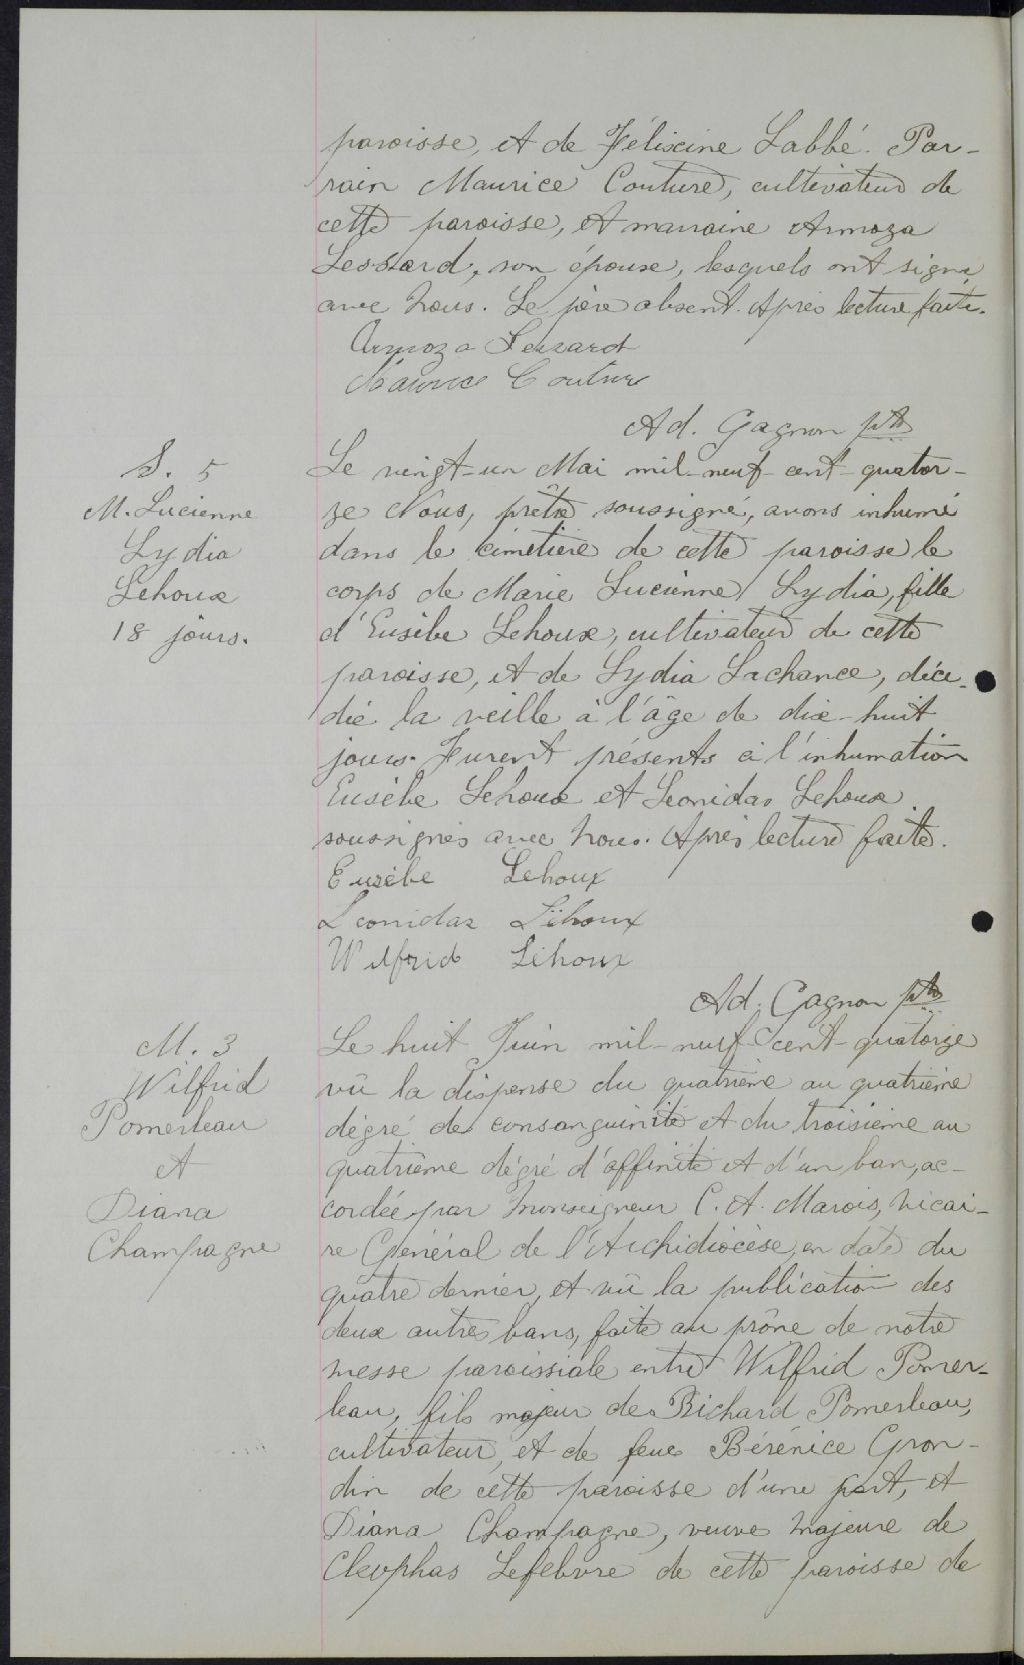 paroisse, et de Félixine Labbé. Par-
rain Maurice Couture, cultivateur de
cette paroisse, et marraine Armoza
Lessard, son épouse, lesquels ont signé
avec nous. Le père absent. Après lecture faite.
Armoza Lessard
Maurice Couture
Ad. Gagnon ptre
S. 5
M. Lucienne
Lydia
Lehoux
18 jours.
Le vingt-un Mai mil-neuf-cent-quator-
ze Nous, prêtre soussigné, avons inhumé
dans le cimetière de cette paroisse le
corps de Marie Lucienne Lydia, fille
d'Eusèbe Lehoux, cultivateur de cette
paroisse, et de Lydia Lachance, décé-
dée la veille à l'âge de dix-huit
jours. Furent présents à l'inhumation
Eusèbe Lehoux et Léonidas Lehoux
soussignés avec nous. Après lecture faite.
Eusèbe Lehoux
Leonidas Lehoux
Wilfrid Lehoux
Ad. Gagnon ptre
M. 3
Wilfrid
Pomerleau
et
Diana
Champagne
Le huit Juin mil-neuf-cent-quatorze
vû la dispense du quatrième au quatrième
dégré de consanguinité et du troisième au
quatrième dégré d'affinité et d'un ban, ac-
cordée par Monseigneur C. A. Marois, Vicai-
re Général de l'Archidiocèse, en date du
quatre dernier, et vû la publication des
deux autres bans, faite au prône de notre
messe paroissiale entre Wilfrid Pomer-
leau, fils majeur de Richard Pomerleau,
cultivateur, et de feue Bérénice Gron-
din de cette paroisse d'une part, et
Diana Champagne, veuve majeure de
Cleophas Lefebvre de cette paroisse de